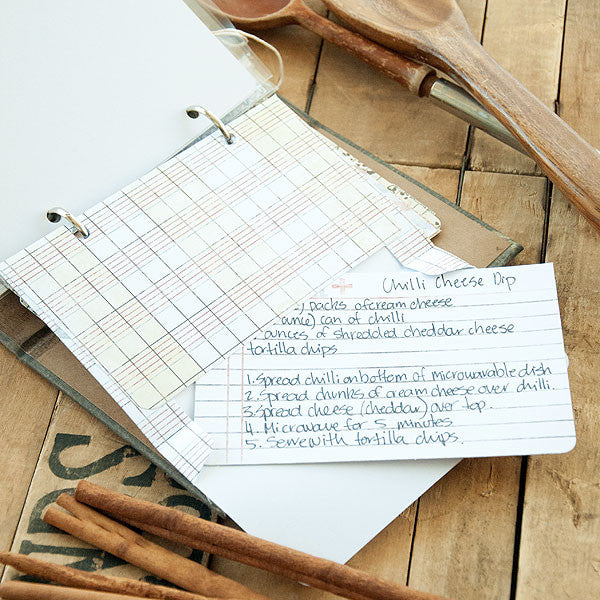 Chilli Cheese Dip
packs of cream cheese
can of chilli
ounces of shredded cheddar cheese
tortilla chips
1. Spread chilli on bottom of microwavable dish
2. Spread chunks of cream cheese over chilli.
3. Spread cheese (cheddar) over top.
4. Microwave for 5 minutes
5. Serve with tortilla chips.